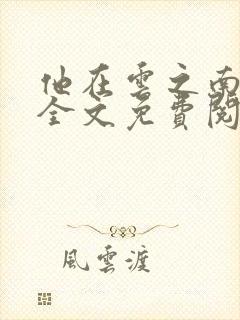 他在雲之南
全文免費閱
風雲渡